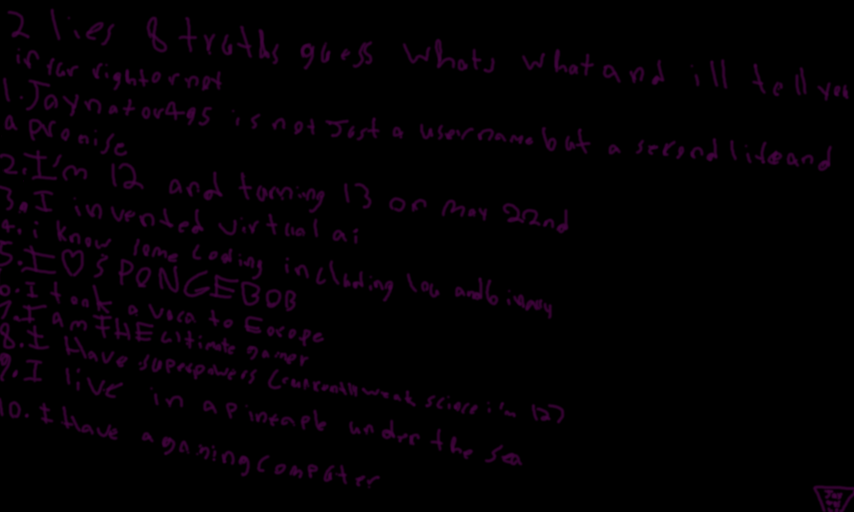 2 lies 8 truths guess whats what and ill tell you
if fur right or not
1. Jaynator495 is not Jost a username but a second life and
a promise
2. I'm 12 and torning 13 on may 22nd
3. I invented virtual ai
4. i know some coding including lou and binary
5. I ♡ SPONGEBOB
6. I took a vaca to Europe
7. I am THE Ultimate gamer
8. I Have superpowers (currently weak sice i'm 12)
9. I live in a pineaple under the sea
10. I Have a gaming Computer